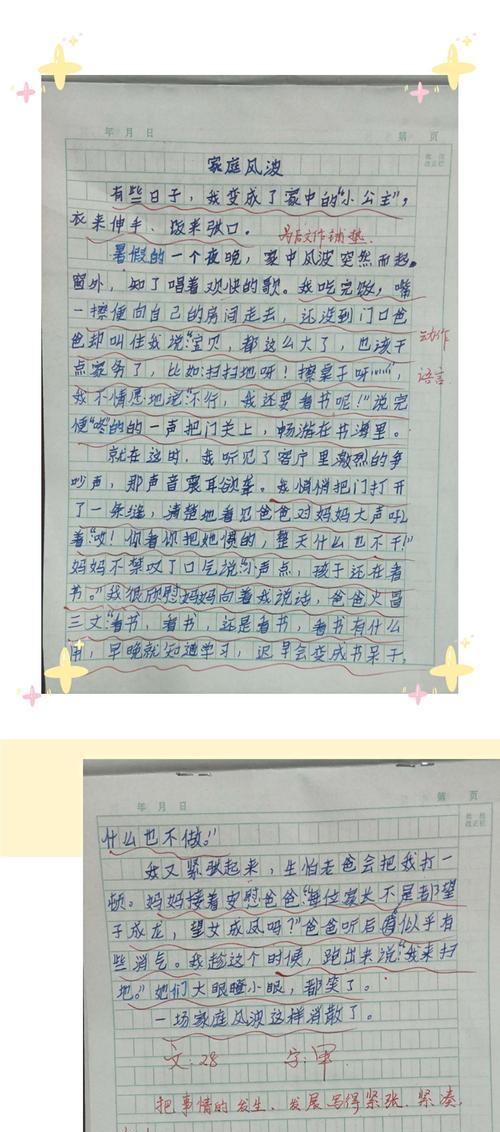 年 月 日 第 页
批 注
改正栏
家庭风波
有些日子，我变成了家中的“小公主”，
衣来伸手、饭来张口。
为后文作铺垫.
暑假的一个夜晚，家中风波突然而起。
窗外，知了唱着欢快的歌。我吃完饭，嘴
一擦便向自己的房间走去，还没到门口爸
动作
爸却叫住我说：“宝贝，都这么大了，也该干
点家务了，比如：扫扫地呀！擦桌子呀……”，
语言
我不情愿地说：“不行，我还要看书呢！”说完
便“咚”的的一声把门关上，畅游在书海里。
就在这时，我听见了客厅里激烈的争
吵声，那声音震耳欲聋。我悄悄把门打开
了一条缝，清楚地看见爸爸对妈妈大声吼
着：“哎！你看你把她惯的，整天什么也不干！”
妈妈不禁叹了口气说：“小声点，孩子还在看
书。”我很欣慰妈妈向着我说话，爸爸火冒
三丈：“看书，看书，还是看书，看书有什么
用，早晚就知道学习，迟早会变成书呆子，
年 月 日 第 页
批 注
改正栏
什么也不做。”
我又紧张起来，生怕老爸会把我打一
顿。妈妈接着安慰爸爸：“每位家长不是都望
子成龙，望女成凤吗？”爸爸听后似乎有
些消气。我趁这个时候，跑出来说：“我来扫
地。”她们大眼瞪小眼，都笑了。
一场家庭风波这样消散了。
文：28 字：
把事情的发生、发展写得紧张、紧凑，